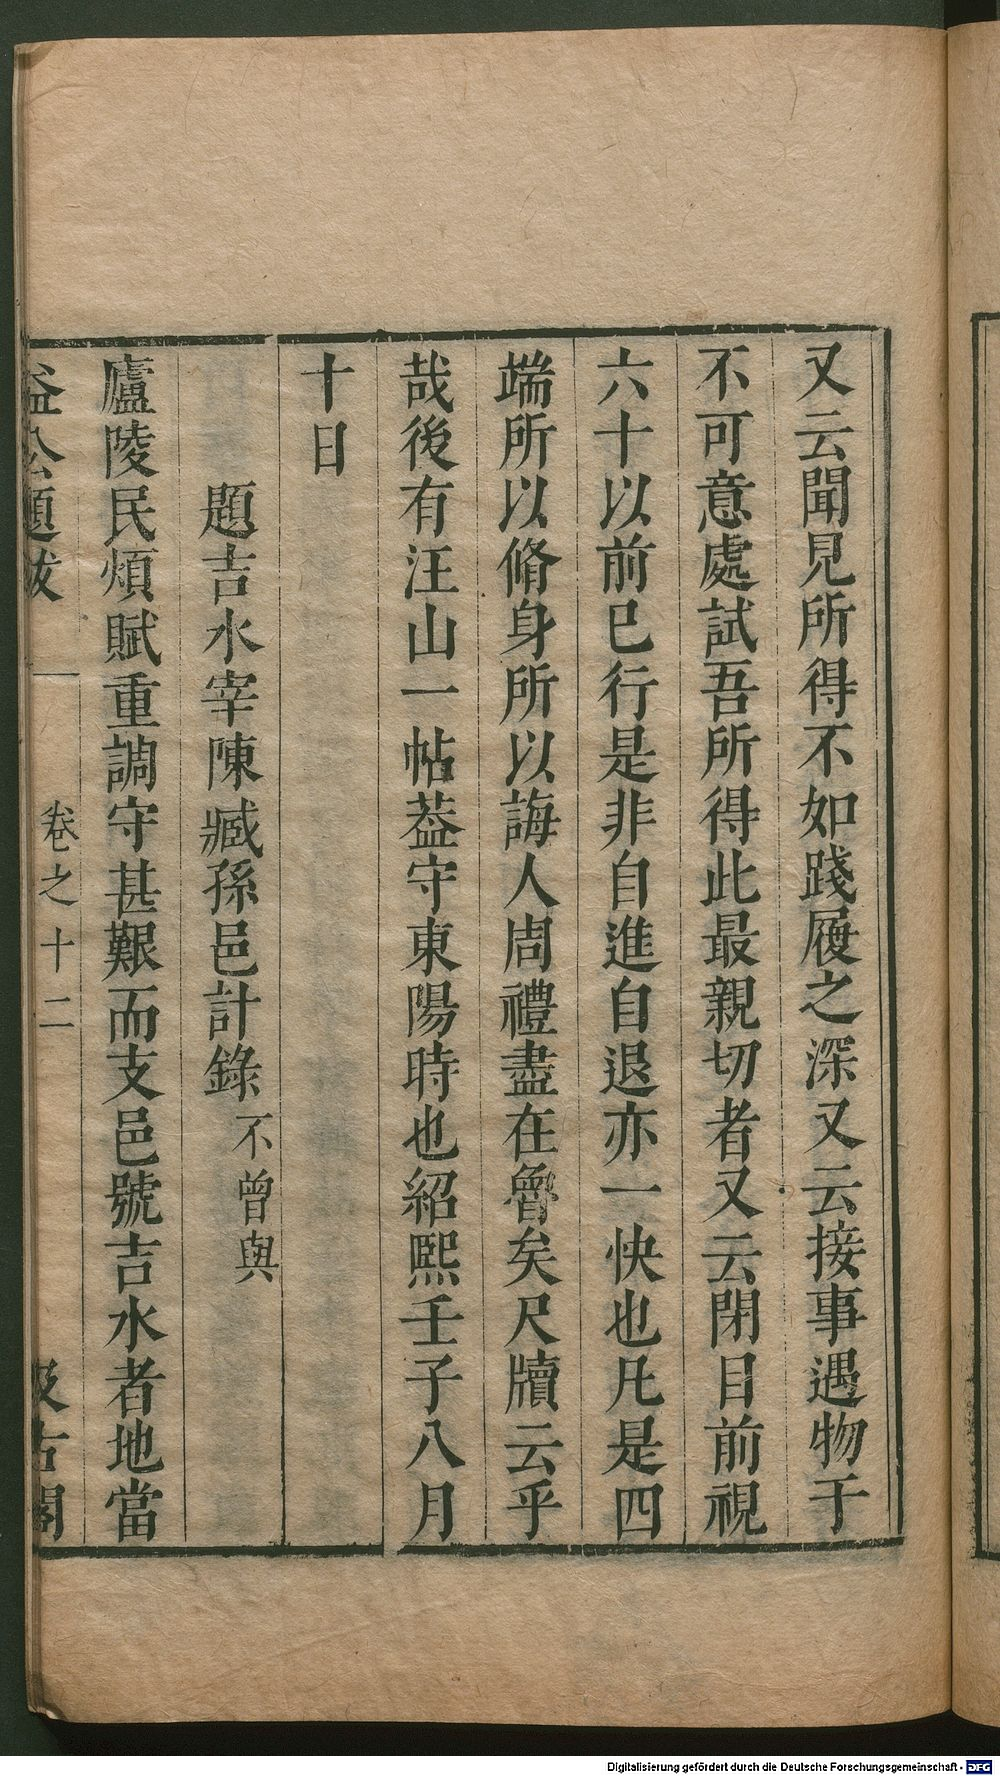 又云聞見所得不如踐履之深又云接事遇物于
不可意處試吾所得此最親切者又云閉目前視
六十以前已行是非自進自退亦一快也凡是四
端所以脩身所以誨人周禮盡在魯矣尺牘云乎
哉後有汪山一帖葢守東陽時也紹熙壬子八月
十日
題吉水宰陳臧孫邑計錄不曾與
廬陵民煩賦重調守甚艱而支邑號吉水者地當
益公題跋 卷之十二 汲古閣
Digitalisierung gefördert durch die Deutsche Forschungsgemeinschaft - DFG